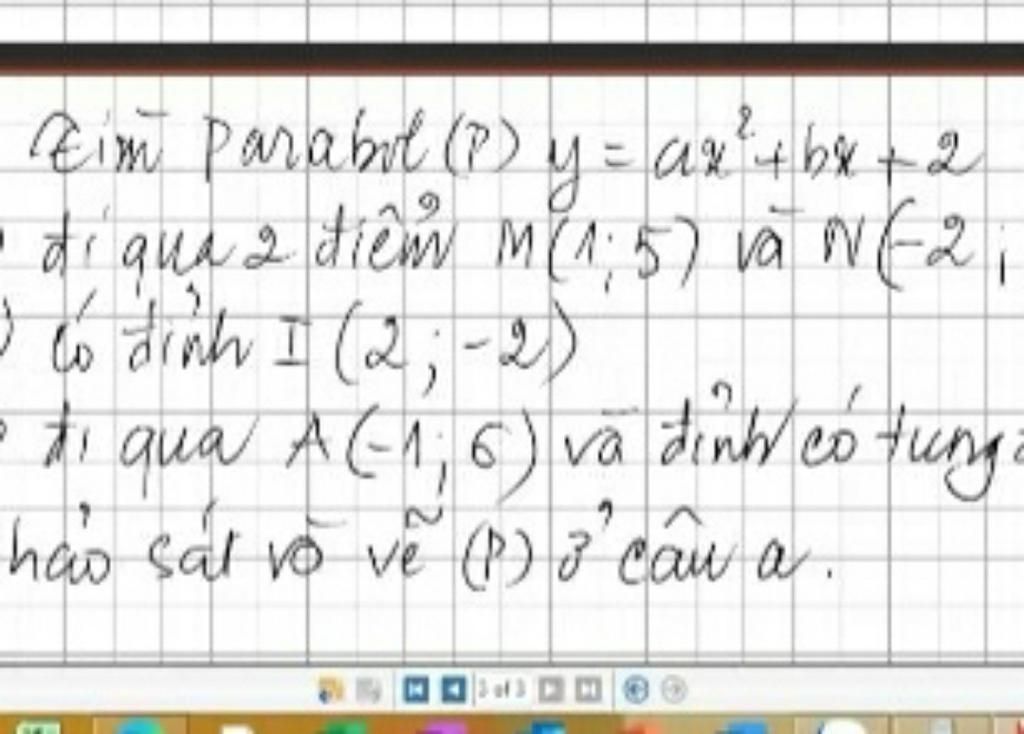 Tìm parabol (P) y = ax² + bx + 2
đi qua 2 điểm M(1; 5) và N(-2;
) có đỉnh I (2; -2)
đi qua A(-1; 6) và đỉnh có tung
hảo sát và vẽ (P) ở câu a.
3 of 3